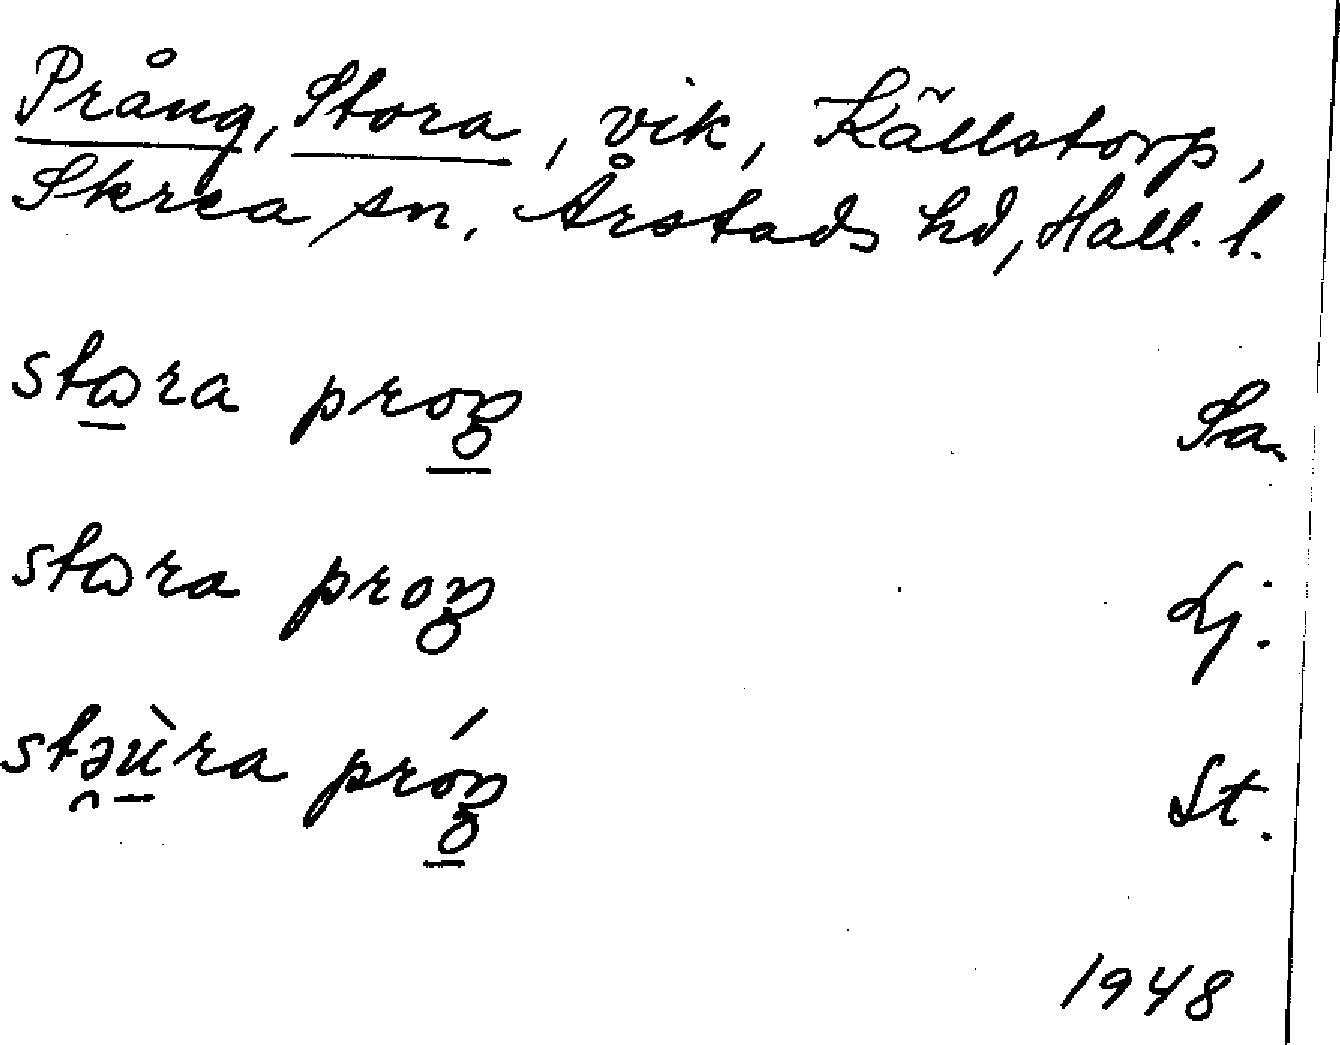 Prång, Stora, vik, Källstorp,
Skrea sn. Årstads hd, Hall. l.
stɷra proŋ Sa.
stɷra proŋ Lj.
stə̯ùra próŋ St.
1948